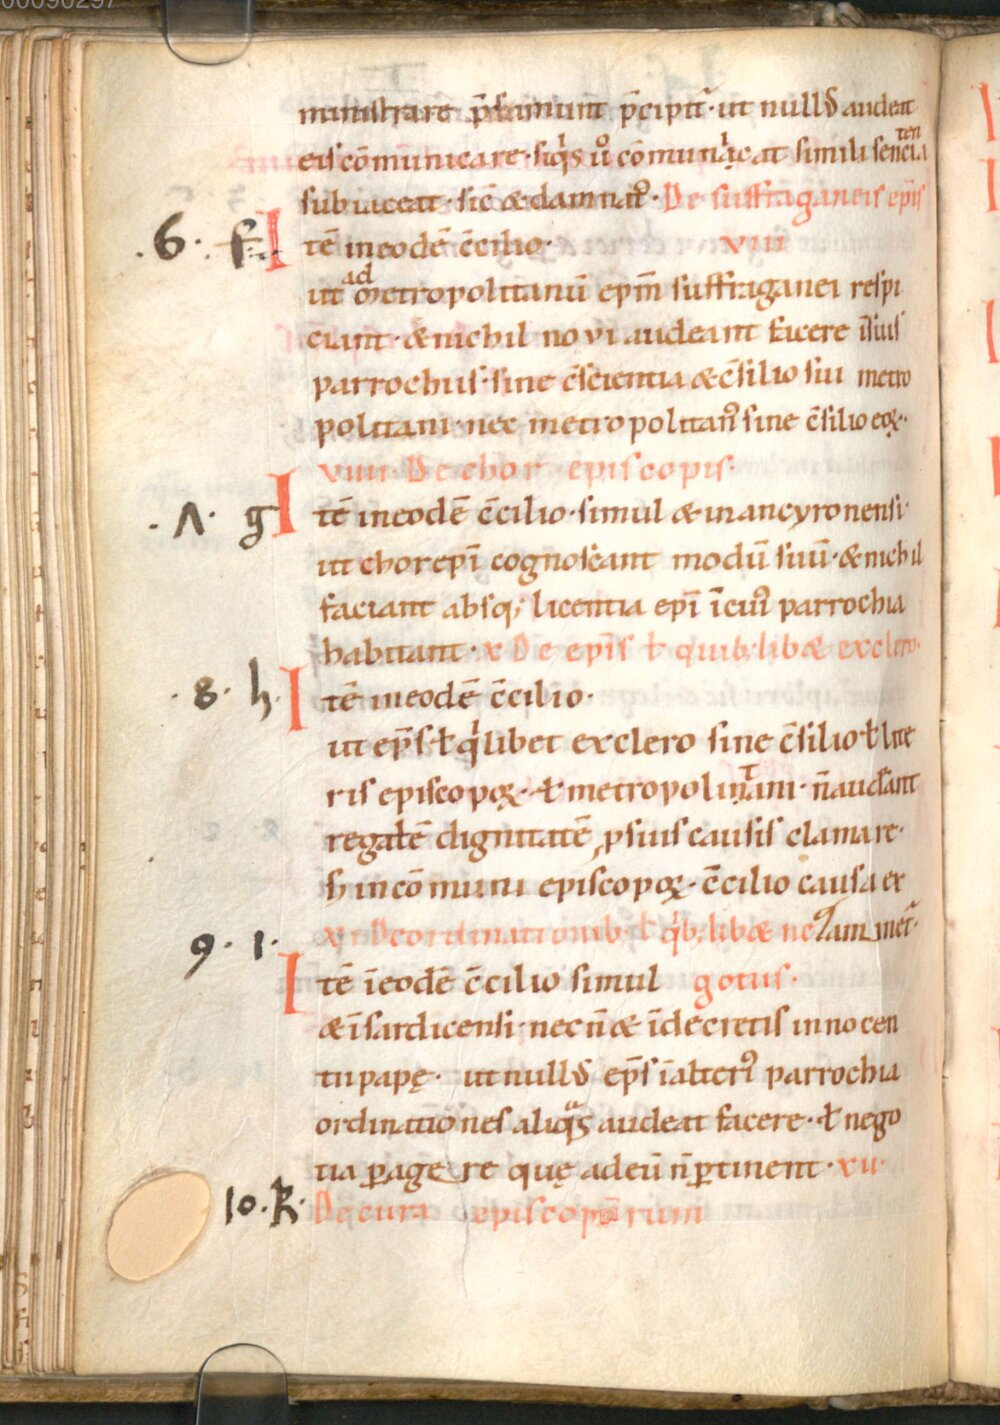 00090297
ministrare p̄sumunt p̄cipit᷑· ut null᷒ audeat
eis cōmunicare· siqͥs u͛o cōmunicat simili sentencia
subiaceat· sic̄ & damnat᷑· De suffraganeis ep̄is
·6· f Itē in eodē c̄cilio· viii
ut ad metropolitanū ep̄m suffraganei respi
ciant· & nichil novi audeant facere i suis
parrochiis· sine c̄scientia & c̄silio sui metro
politani· nec metropolitan᷒ sine c̄silio eoꝝ·
viiii· De chor episcopis·
·Λ· g Itē in eodē c̄cilio· simul & in ancyronensi·
ut chorep̄i cognoscant modū suū· & nichil
faciant absq; licentia ep̄i ī cui᷒ parrochia
habitant· x De ep̄is ł quib; libæ ex clero·
·8· h· Itē in eodē c̄cilio·
ut ep̄s· ł qͥlibet ex clero sine c̄silio ł litte
ris episcopoꝝ· ł metropolitani· n̄ audeant
regalē dignitatē ꝓ suis causis clamare·
s; in cōmuni episcopoꝝ· c̄cilio causa ex
xi· De ordinationib; ł qͥb; libæ ne am̄inet᷑·
9· 1· Itē ī eodē c̄cilio simul gotiis·
& ī sardicensi· nec n̄ & ī decretis innocen
tii papę· ut null᷒ ep̄s ī alteri᷒ parrochia
ordinationes aliqᷓs audeat facere· ł nego
tia ꝑagere que ad eū n̄ ꝑtinent· xii·
10· k· De cura episcoporum